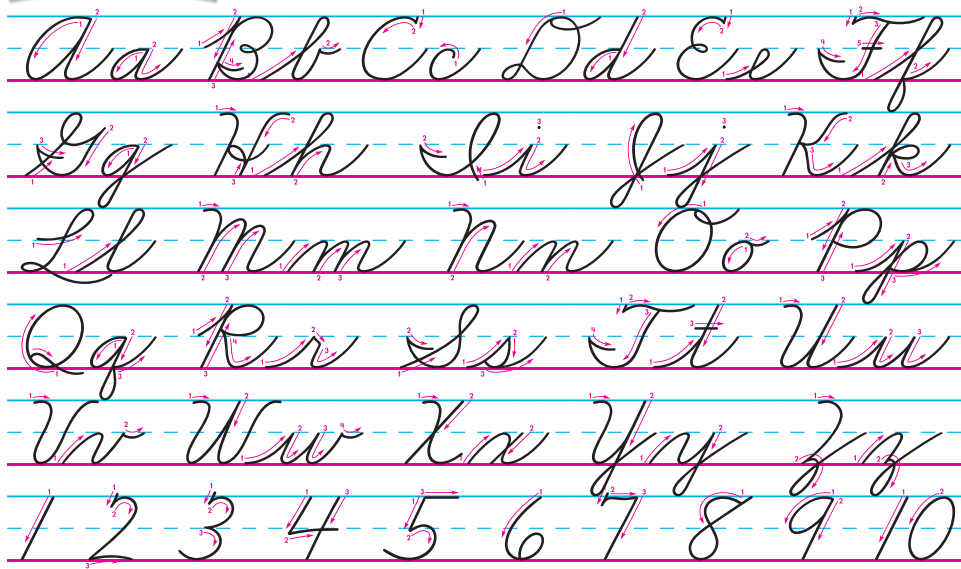 A a B b C c D d E e F f
G g H h I i J j K k
L l M m N n O o P p
Q q R r S s T t U u
V v W w X x Y y Z z
1 2 3 4 5 6 7 8 9 10